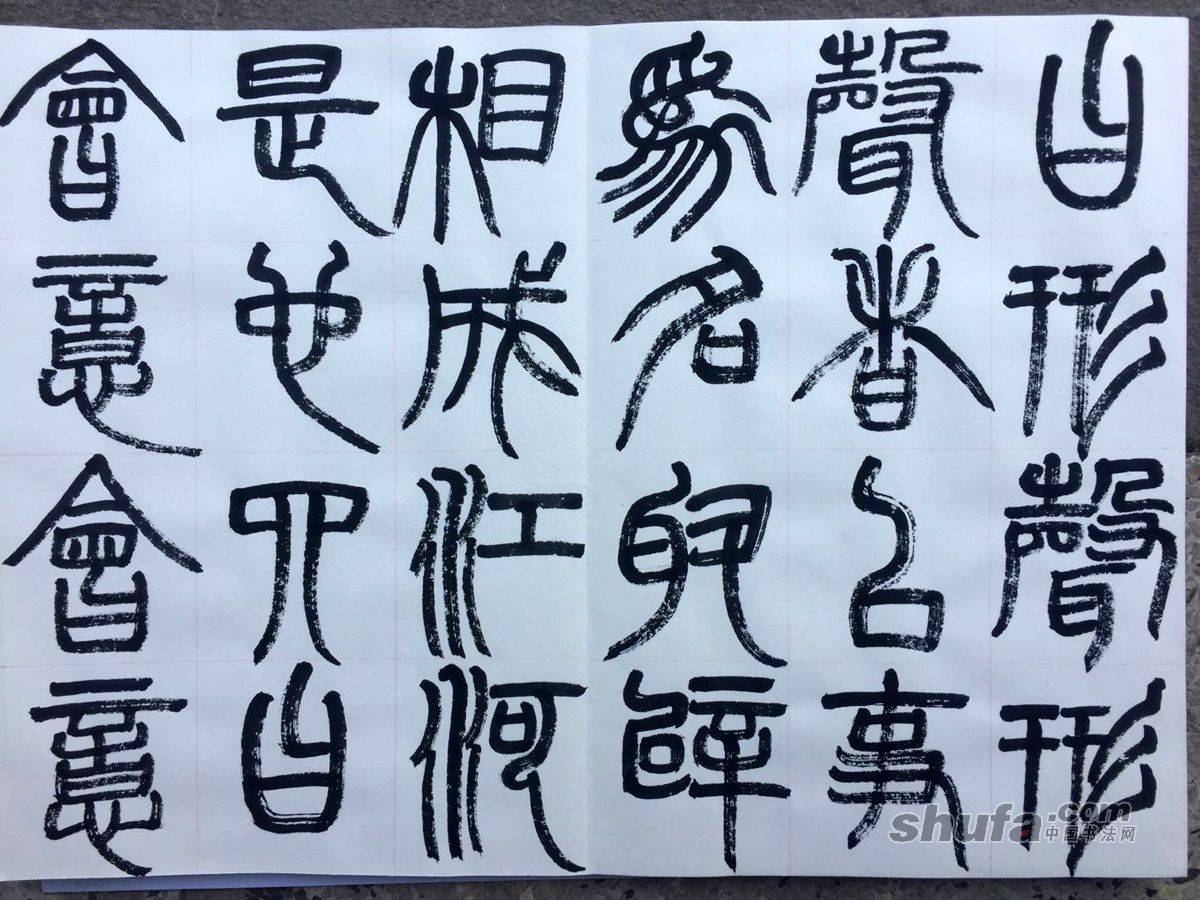 曰形聲形
聲者以事
為名取譬
相成江河
是也四曰
會意會意
shufa.com
中国书法网